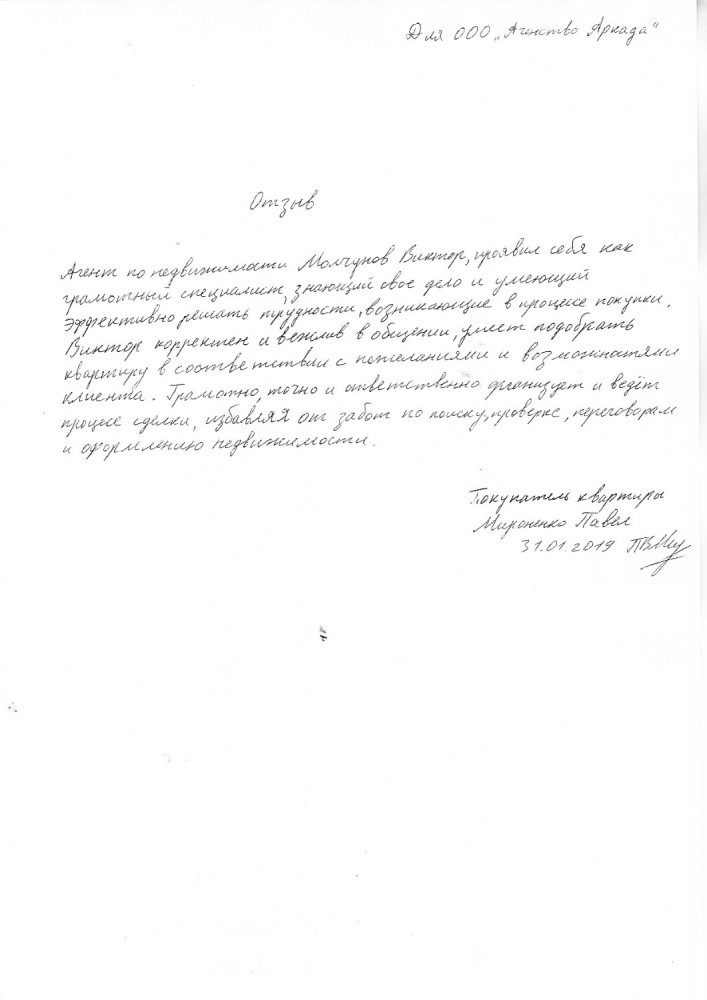 Для ООО „Агенство Аркада"
Отзыв
Агент по недвижимости Молчунов Виктор, проявил себя как
грамотный специалист, знающий свое дело и умеющий
эффективно решать трудности, возникающие в процессе покупки.
Виктор корректен и вежлив в общении, умеет подобрать
квартиру в соответствии с пожеланиями и возможностями
клиента. Грамотно, точно и ответственно организует и ведёт
процесс сделки, избавляя от забот по поиску, проверке, переговорам
и оформлению недвижимости.
Покупатель квартиры
Мироненко Павел
31.01.2019